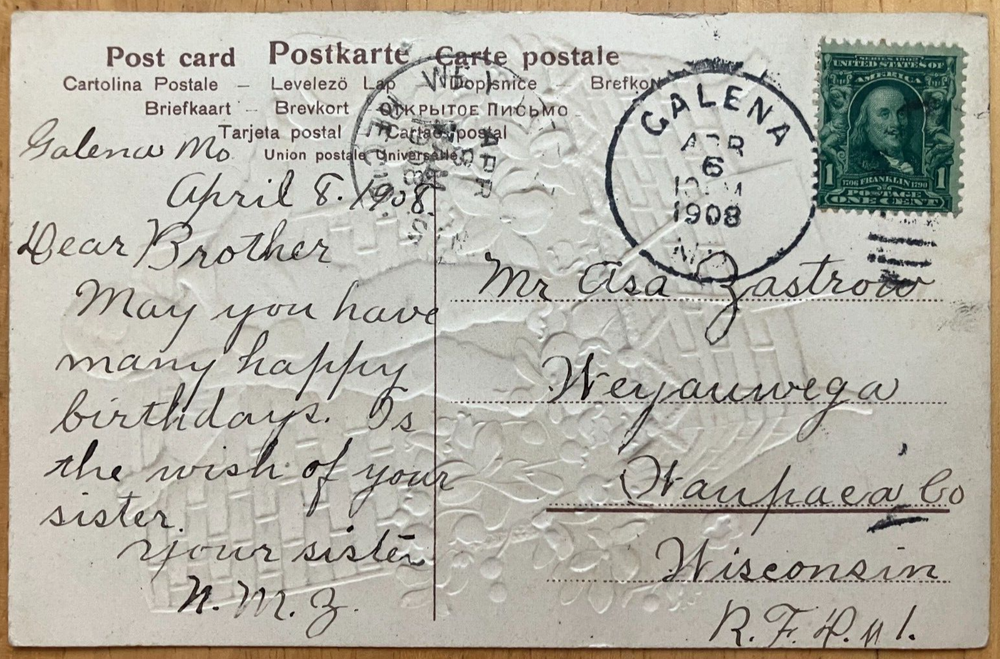 Post card Postkarte Carte postale
Cartolina Postale – Levelezö Lap – Dopisnice – Brefkort
Briefkaart – Brevkort – Открытое Письмо
Tarjeta postal – Cartao postal
Union postale Universelle
Galena Mo
April 8. 1908.
Dear Brother
May you have
many happy
birthdays. Is
the wish of your
sister.
Your sister
N. M. Z.
GALENA
APR
6
1908
MO
APR
1908
SERIES 1902
UNITED STATES OF
AMERICA
1706 FRANKLIN 1790
1 POSTAGE 1
ONE CENT
Mr Asa Zastrow
Weyauwega
Waupaca Co
Wisconsin
R. F. D. # 1.